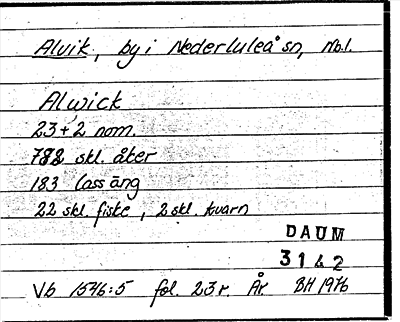 Alvik, by i Nederluleå sn, Nb.l.
Alwick
23+2 nom.
782 skl. åker
183 lass äng
22 skl. fiske, 2 skl. kvarn
DAUM
3142
Vb 1546:5 fol. 23r. År BH 1976